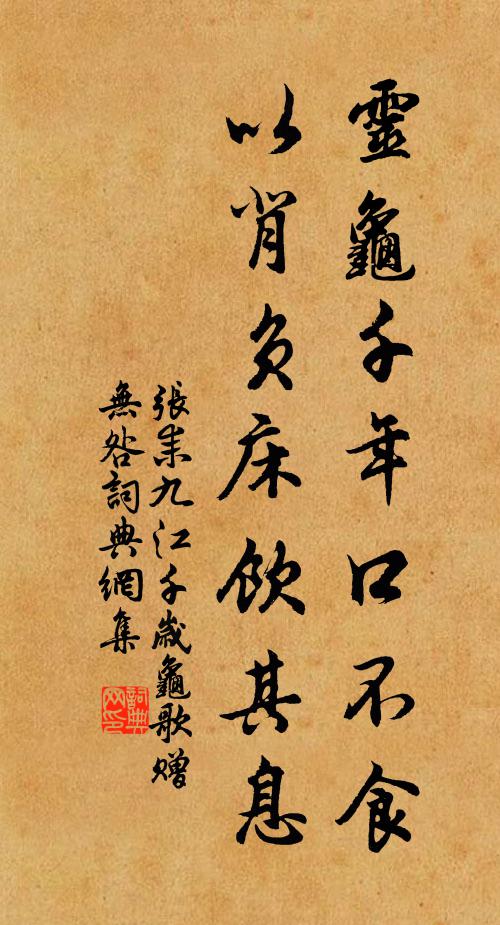 靈龜千年口不食
以背負床飲其息
張耒九江千歲龜歌贈
無咎詞典網集
詞典網印